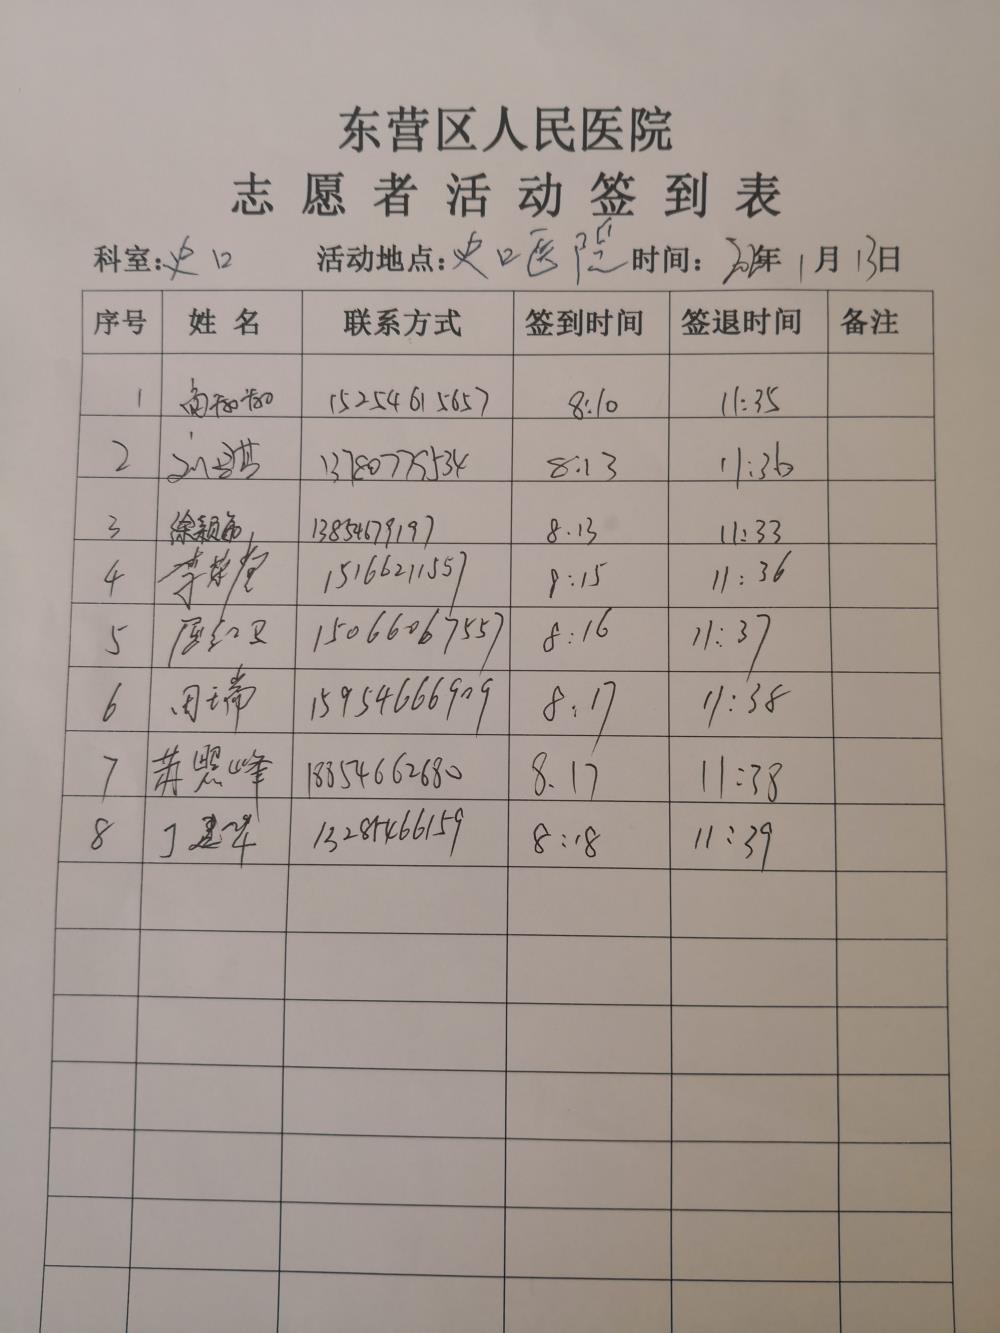 东营区人民医院
志愿者活动签到表
科室:史口 活动地点:史口医院 时间: 年 1月 13日
序号 姓名 联系方式 签到时间 签退时间 备注
1 15254615657 8:10 11:35
2 13780775534 8:13 11:36
3 徐颖 13854679197 8:13 11:33
4 李 15166211557 8:15 11:36
5 15066067557 8:16 11:37
6 周瑞 15954666909 8:17 11:38
7 苏照峰 18854662680 8.17 11:38
8 丁建华 13285466159 8:18 11:39